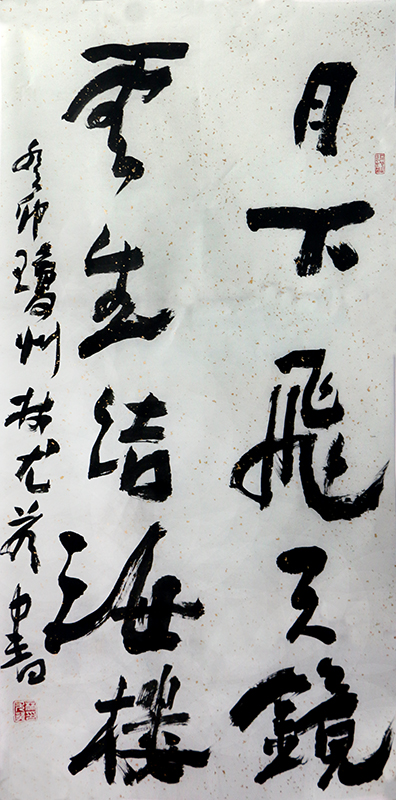 月下飛天鏡
雲生结海樓
癸卯瓊州林尤葵書